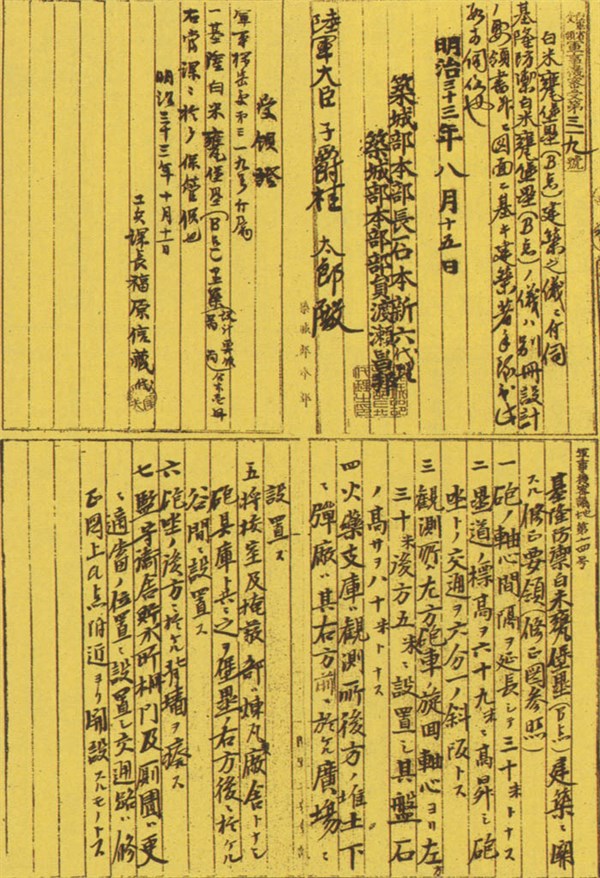 軍事機密受第三一九號
白米甕堡壘(B点)建築之儀ニ付伺
基隆防禦白米甕堡壘(B点)ノ儀ハ別冊設計
要領書並ニ図面ニ基キ建築著手
相伺候也
明治三十三年八月十五日
築城部本部長石本新六代理
築城部本部部員渡瀬昌邦
陸軍大臣子爵桂太郎殿
受領證
一基隆白米甕堡壘(B点)
右當課ニ於テ保管候也
明治三十三年十月十一日
工兵課長榊原信藏代
軍事機密 第一四号
基隆防禦白米甕堡壘(B点)建築ニ関
スル修正要領(修正図参照)
一砲ノ軸心間隔ヲ延長シテ三十米トナス
二壘道ノ標高ヲ六十九米ニ高昇シ砲
坐トノ交通ヲ六分一ノ斜阪トス
三観測所ハ左方砲車旋回軸心ヨリ左方
三十米後方五米ニ設置シ其盤石
ノ高サヲ八十米トナス
四火藥支庫ハ観測所後方ノ堆土下
ニ彈廠ハ其右方前ニ於ケル廣場ニ
設置ス
五將校室及掩蔽部ハ煉瓦廠舎トナシ
砲具庫ト共ニ之ヲ堡壘ノ右方後ニ於ケル
谷間ニ設置ス
六砲坐ノ後方ニ於ケル背墻ヲ廢ス
七監守衛舎貯水所柵門及厠圊ハ更
ニ適當ノ位置ニ設置シ交通路ハ修
正図上a点附近ヨリ開設スルモノトス